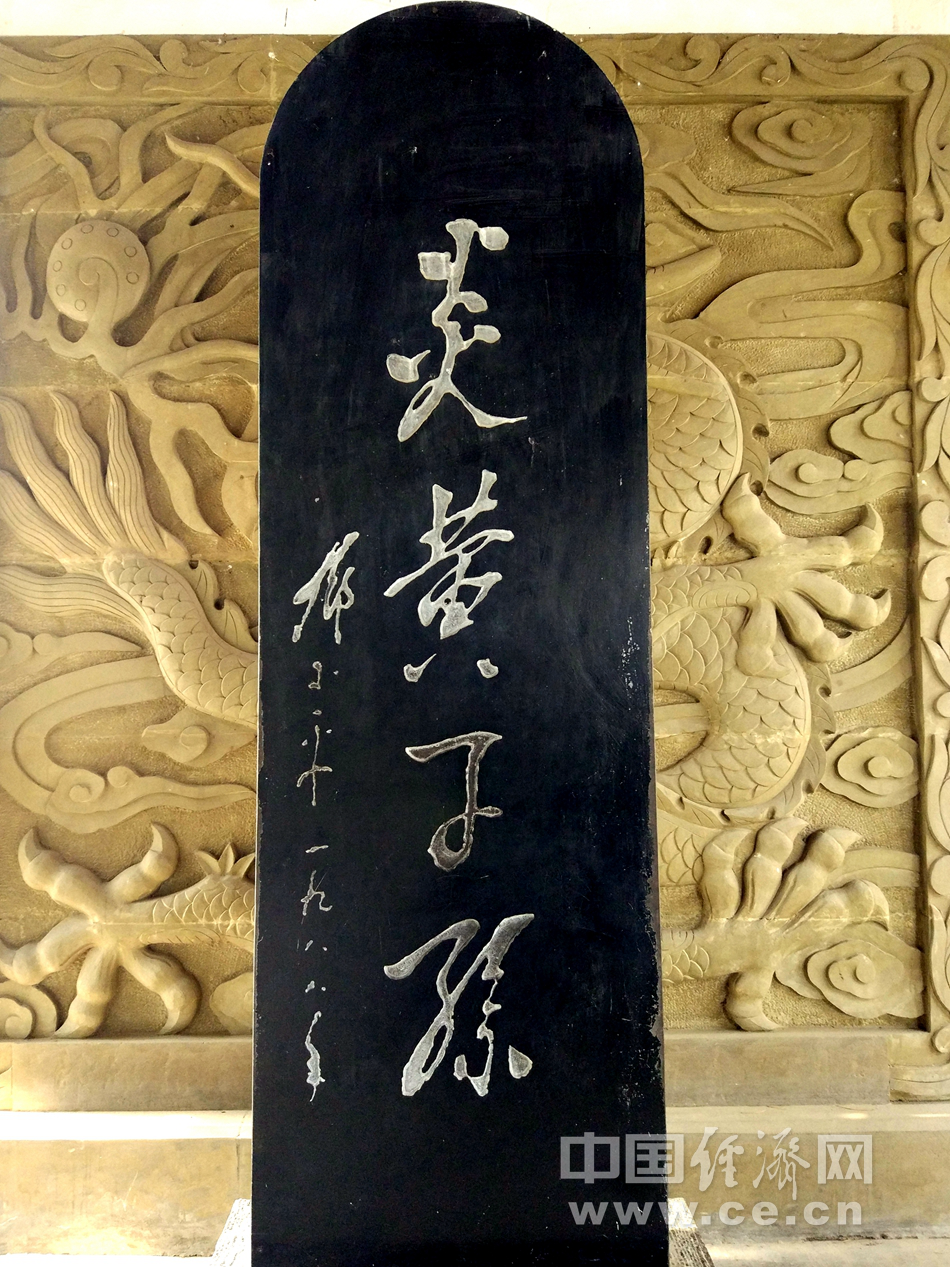 炎黄子孫
一九八八年
中国经济网
www.ce.cn